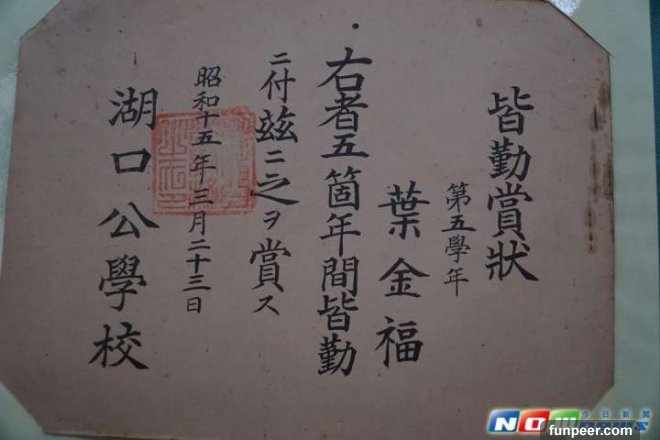 皆勤賞狀
第五學年
葉金福
右者五箇年間皆勤
ニ付玆ニ之ヲ賞ス
昭和十五年三月二十三日
湖口公學校
今日新聞
NOWnews
funpeer.com